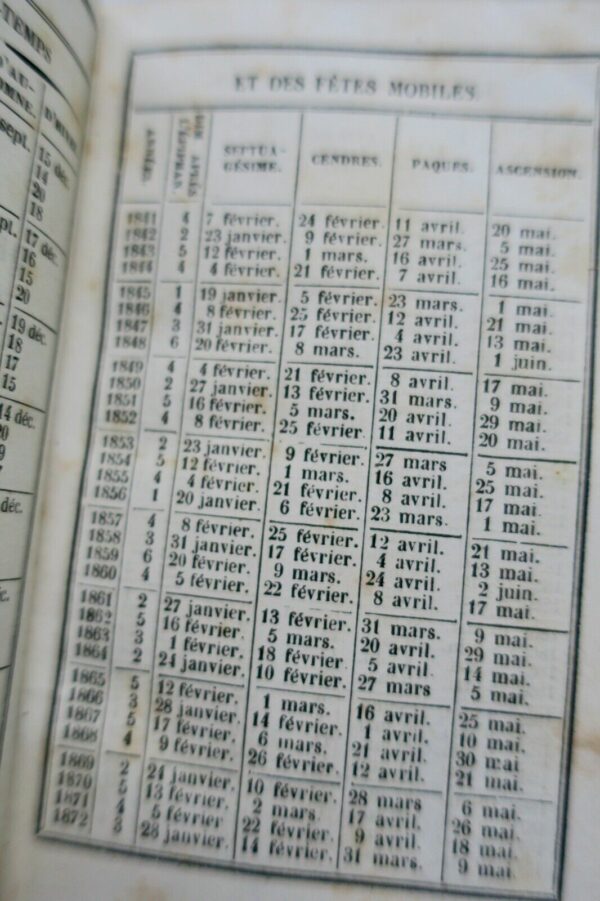 -TEMPS
D'AU-
OMNE.
sept. 15 déc.
14
20
18
pt. 17 déc.
16
15
20
19 déc.
18
17
15
14 déc.
déc.
ET DES FÊTES MOBILES.
ANNÉES. SEPTUA-GÉSIME. CENDRES. PAQUES. ASCENSION.
1841 4 7 février. 24 février. 11 avril. 20 mai.
1842 2 23 janvier. 9 février. 27 mars. 5 mai.
1843 5 12 février. 1 mars. 16 avril. 25 mai.
1844 4 4 février. 21 février. 7 avril. 16 mai.
1845 1 19 janvier. 5 février. 23 mars. 1 mai.
1846 4 8 février. 25 février. 12 avril. 21 mai.
1847 3 31 janvier. 17 février. 4 avril. 13 mai.
1848 6 20 février. 8 mars. 23 avril. 1 juin.
1849 4 4 février. 21 février. 8 avril. 17 mai.
1850 2 27 janvier. 13 février. 31 mars. 9 mai.
1851 5 16 février. 5 mars. 20 avril. 29 mai.
1852 4 8 février. 25 février. 11 avril. 20 mai.
1853 2 23 janvier. 9 février. 27 mars 5 mai.
1854 5 12 février. 1 mars. 16 avril. 25 mai.
1855 4 4 février. 21 février. 8 avril. 17 mai.
1856 1 20 janvier. 6 février. 23 mars. 1 mai.
1857 4 8 février. 25 février. 12 avril. 21 mai.
1858 3 31 janvier. 17 février. 4 avril. 13 mai.
1859 6 20 février. 9 mars. 24 avril. 2 juin.
1860 4 5 février. 22 février. 8 avril. 17 mai.
1861 2 27 janvier. 13 février. 31 mars. 9 mai.
1862 5 16 février. 5 mars. 20 avril. 29 mai.
1863 3 1 février. 18 février. 5 avril. 14 mai.
1864 2 24 janvier. 10 février. 27 mars 5 mai.
1865 5 12 février. 1 mars. 16 avril. 25 mai.
1866 3 28 janvier. 14 février. 1 avril. 10 mai.
1867 5 17 février. 6 mars. 21 avril. 30 mai
1868 4 9 février. 26 février. 12 avril. 21 mai.
1869 2 24 janvier. 10 février. 28 mars 6 mai.
1870 5 13 février. 2 mars. 17 avril. 26 mai.
1871 4 5 février 22 février. 9 avril. 18 mai.
1872 3 28 janvier. 14 février. 31 mars. 9 mai.